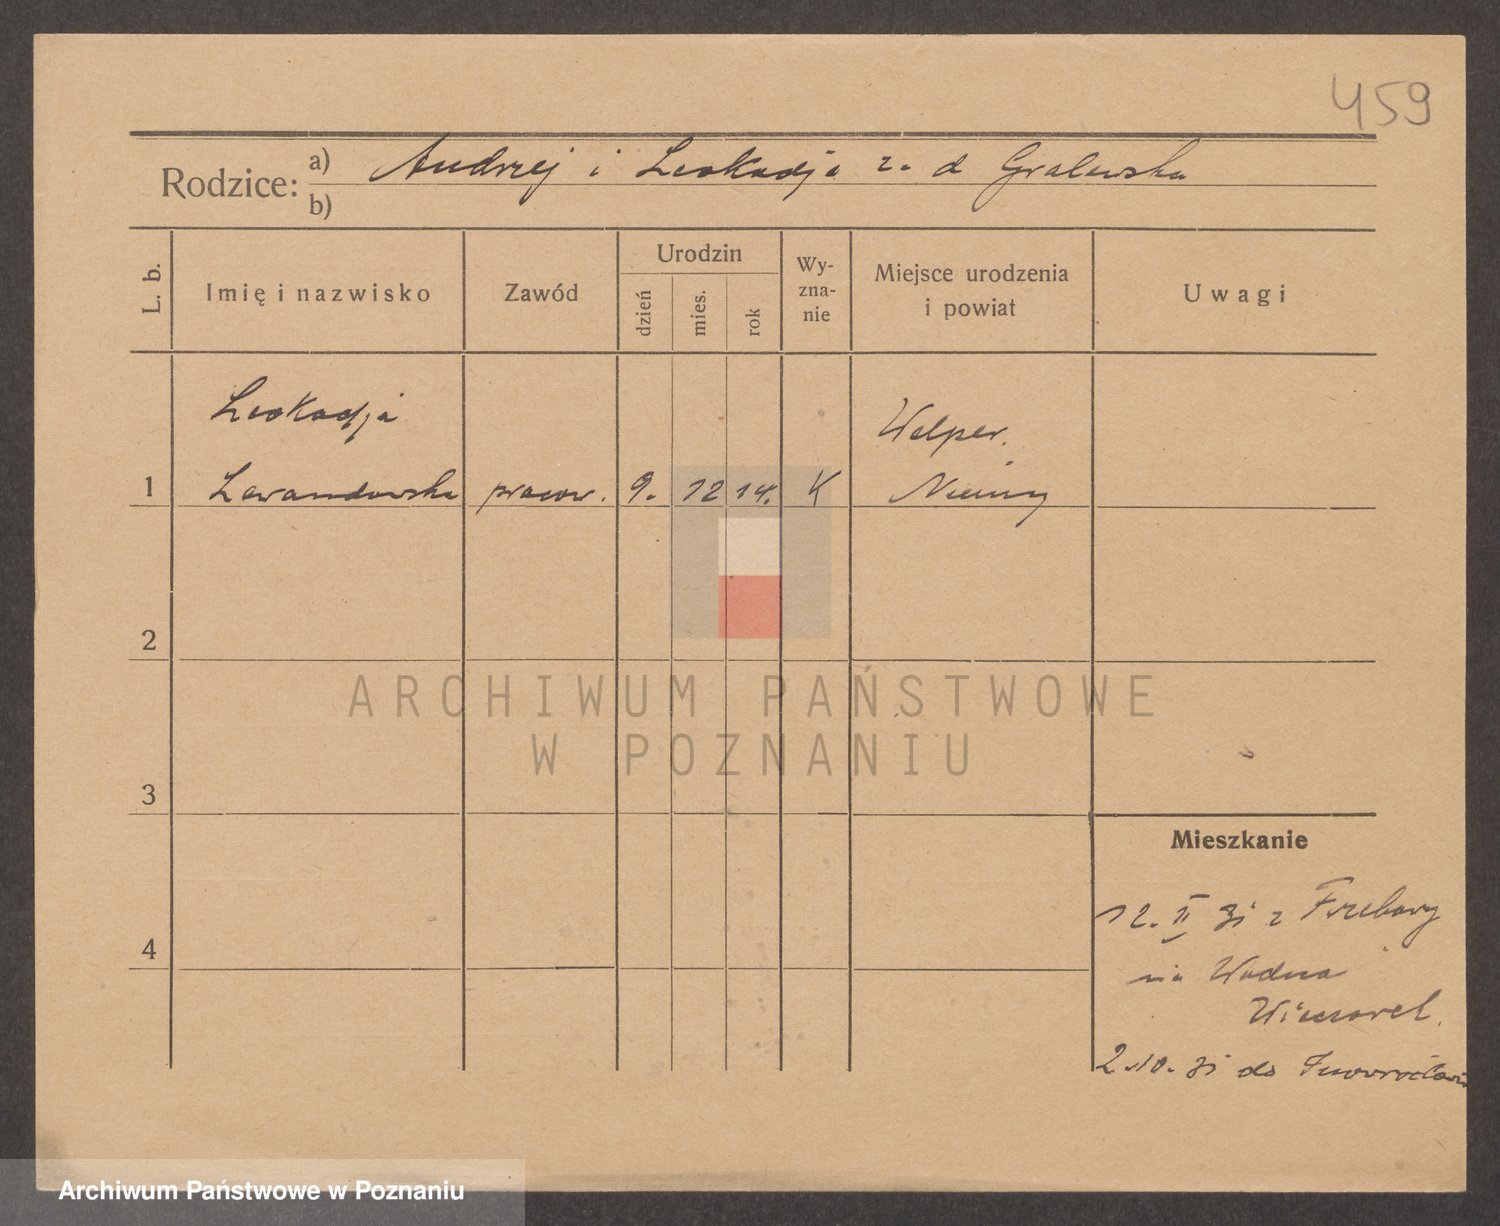 459
Rodzice: a) Andrzej i Leokadja z. d Gralewska
b)
L. b.
Imię i nazwisko
Zawód
Urodzin
dzień
mies.
rok
Wy-
zna-
nie
Miejsce urodzenia
i powiat
Uwagi
Leokadja
Welper.
1 Lewandowska pracow. 9. 12 14. K Niemcy
2
3
4
ARCHIWUM PAŃSTWOWE
W POZNANIU
Mieszkanie
12. II 31 z
na Wodna
2.10. 31 do Inowrocławia
Archiwum Państwowe w Poznaniu